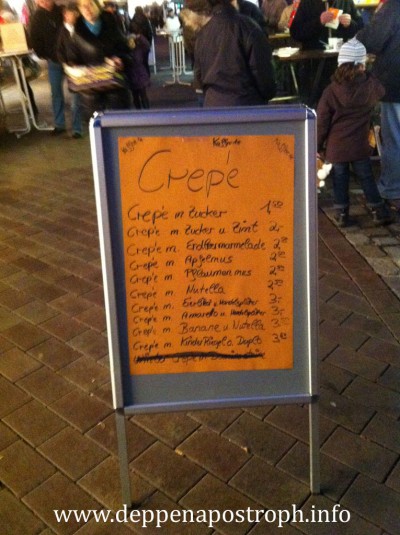 Crep'e
Crep'e m Zucker 1,50
Crep'e m Zucker u Zimt 2,-
Crep'e m. Erdbeermarmelade 2,50
Crep'e m Apfelmus 2,50
Crep'e m Pflaumenmus 2,50
Crep'e m Nutella 2,50
Crep'e m. 3,-
Crep'e m Amaretto u 3,-
Crep'e m Banane u Nutella 3,50
Crep'e m Kinder Riegel o. Duplo 3,50
www.deppenapostroph.info